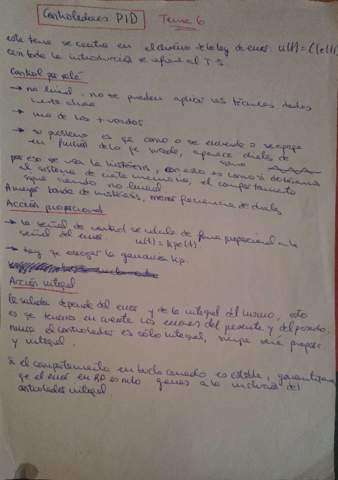 Controladores PID Tema 6
este tema se centra en el diseño de la ley de error: u(t) = C(e(t))
casi toda la introducción se refiere al T.S.
Control por relé
→ no lineal, no se pueden aplicar las técnicas dadas
hasta ahora
→ uno de los + usados
→ su problema es qe como o se enciende o se apaga
en función de lo qe sucede, aparece ciclos de
por eso se usa la histéresis, con eso es como si dotásemos
al sistema de cierta memoria, el comportamiento
sigue siendo no lineal
A mayor banda de histéresis, menor frecuencia de ciclos
Acción proporcional
→ la señal de control se calcula de forma proporcional a la
señal del error. u(t) = kp e(t)
→ hay qe escoger la ganancia kp.
Acción integral
la salida depende del error y de la integral del mismo, esto
es qe tenemos en cuenta los errores del presente y del pasado.
nunca el controlador es sólo integral, siempre será proporc
y integral.
Si el comportamiento en bucle cerrado es estable, garantizamos
qe el error en RP es nulo gracias a la inclusión del
controlador integral